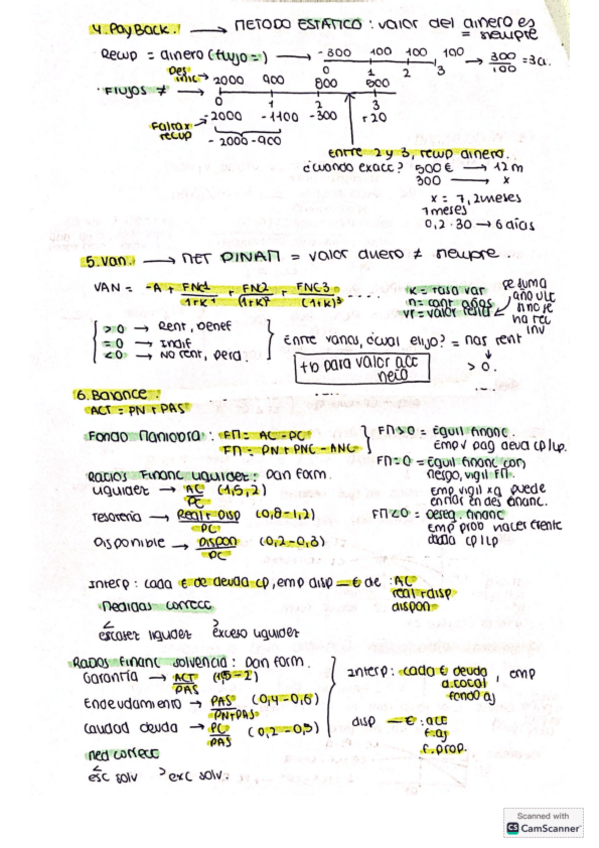 4. PayBack. → METODO ESTATICO : valor del dinero es
= siempre
Recup = dinero (flujo =) → -300 100 100 100 → 300/100 = 3a.
0 1 2 3
Des inic → 2000 900 800 800
Flujos ≠ →
0 1 2 3
-2000 -1100 -300 +20
Faltax recup
-2000-900
Entre 2 y 3, recup dinero.
¿cuando exacc? 500€ → 12m
300 → x
x = 7,2 meses
7 meses
0,2 · 30 → 6 días
5. Van. → MET DINAM = valor dinero ≠ siempre.
VAN = -A + FNC1/1+K + FN2/(1+K)² + FNC3/(1+K)³ ....
K = tasa var
n = cant años
vr = valor resid
se suma año ult
> 0 → Rent, benef
= 0 → Indif
< 0 → No rent, perd.
Entre vanos, ¿cual elijo? = mas rent
> 0.
+b para valor acc
6. Balance.
ACT = PN + PAS
Fondo Maniobra : FM = AC - PC
FM = PN + PNC - ANC
FM>0 = Equil financ.
Emp v pag deuda cp lp.
FM=0 = Equil financ con
riesgo, vigil FM.
emp vigil xq puede
entrar en des financ.
FM<0 = Deseq. financ
Emp prob hacer frente
deuda cp lp
Ratios Financ liquidez : Dan form.
Liquidez → AC/PC (1,5, 2)
Tesorería → Real+Disp/PC (0,8-1,2)
Disponible → Dispon/PC (0,2-0,3)
Interp : cada € de deuda cp, emp disp — € de : AC
real + disp
dispon
Medidas correcc
<
escasez liquidez
>
exceso liquidez
Ratios Financ solvencia : Dan form.
Garantía → ACT/PAS (1,5-2)
Endeudamiento → PAS/PN+PAS (0,4-0,6)
Calidad deuda → PC/PAS (0,2-0,5)
Interp : cada € deuda
d. total , emp
fondo aj
disp — € : act
f. aj
f. prop.
med correcc
<
esc solv
> exc solv.
Scanned with
CS CamScanner